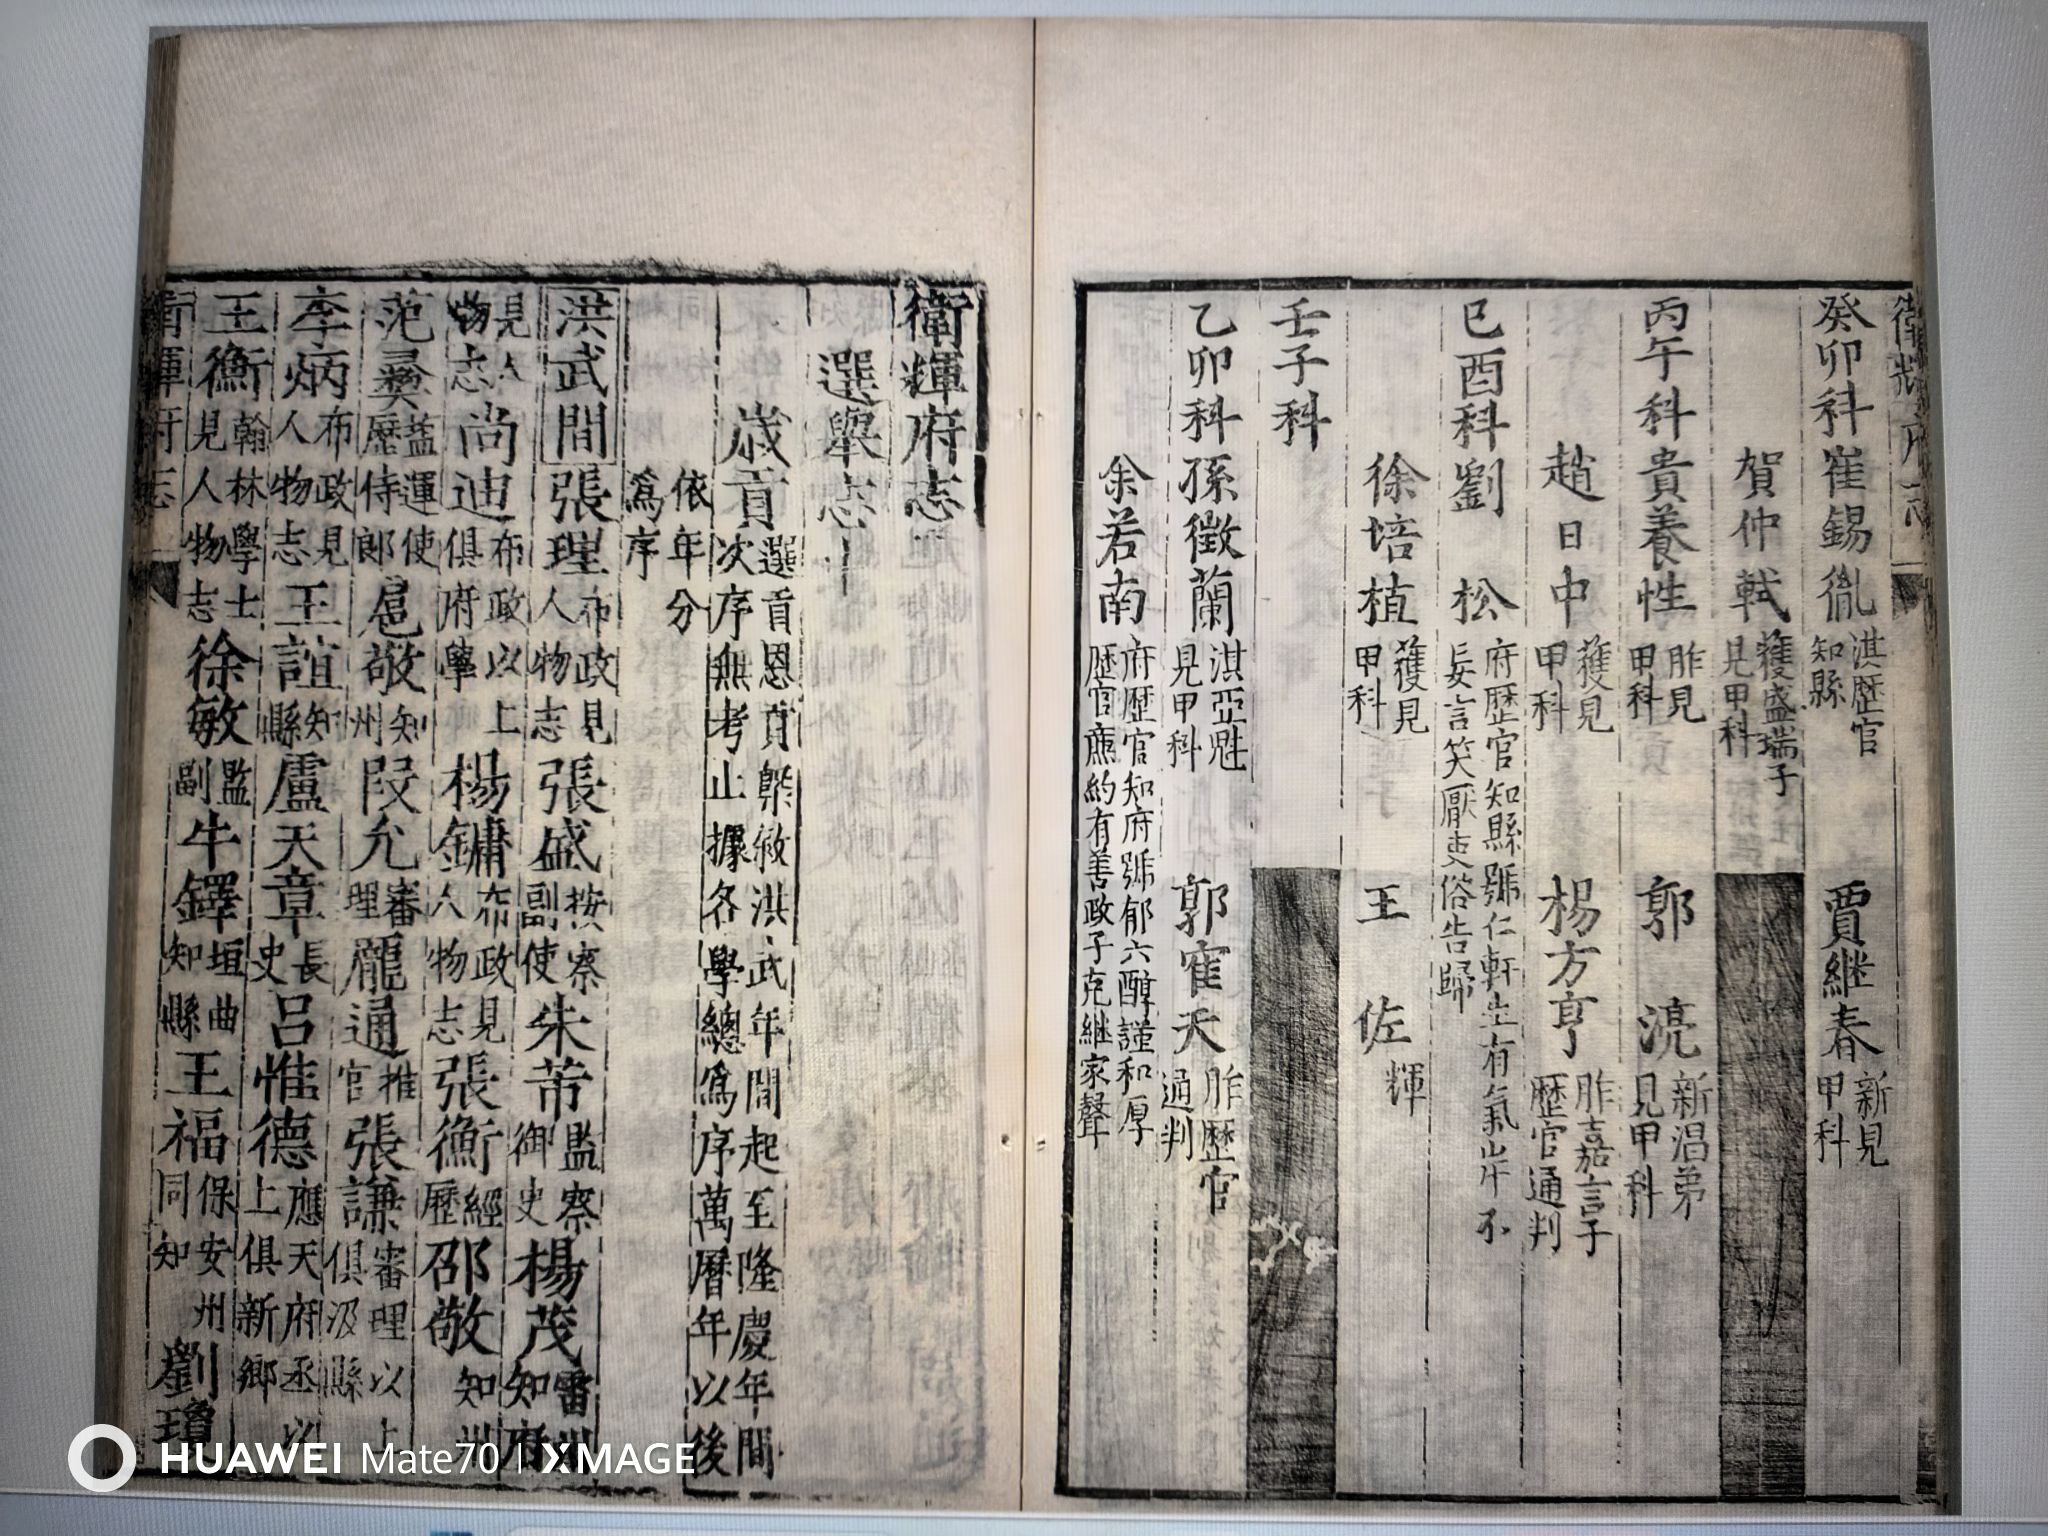 癸卯科崔錫胤淇歷官知縣 賈繼春新見甲科
賀仲軾獲盛瑞子見甲科
丙午科貴養性胙見甲科 郭淐新淐弟見甲科
趙日中獲見甲科 楊方亨胙嘉言子歷官通判
己酉科劉 松府歷官知縣號仁軒生有氣岸不妄言笑厭吏俗告歸
徐培植獲見甲科 王 佐輝
壬子科
乙卯科孫徵蘭淇亞魁見甲科 郭寉天胙歷官通判
余若南府歷官知府號郁六醇謹和厚歷官廉約有善政子克繼家聲
衛輝府志
選舉志
歲貢選首恩貢槩敘洪武年間起至隆慶年間次序無考止據各學總爲序萬曆年以後
依年分爲序
洪武間張理布政見人物志張盛按察副使朱芾監察御史楊茂雷州知府
見人物志尚迪布政以上俱府學楊鏞布政見人物志張衡經歷邵敬知州
范彛盐運使歷侍郎扈敬知州段允審理龎通推官張謙審理以上俱汲縣
李炳布政見人物志王誼知縣盧天章長史呂惟德應天府丞以上俱新鄉
王衡翰林學士見人物志徐敏監副牛鐸垣曲知縣王福保安州同知劉瓊
衛輝府志
HUAWEI Mate70 | XMAGE